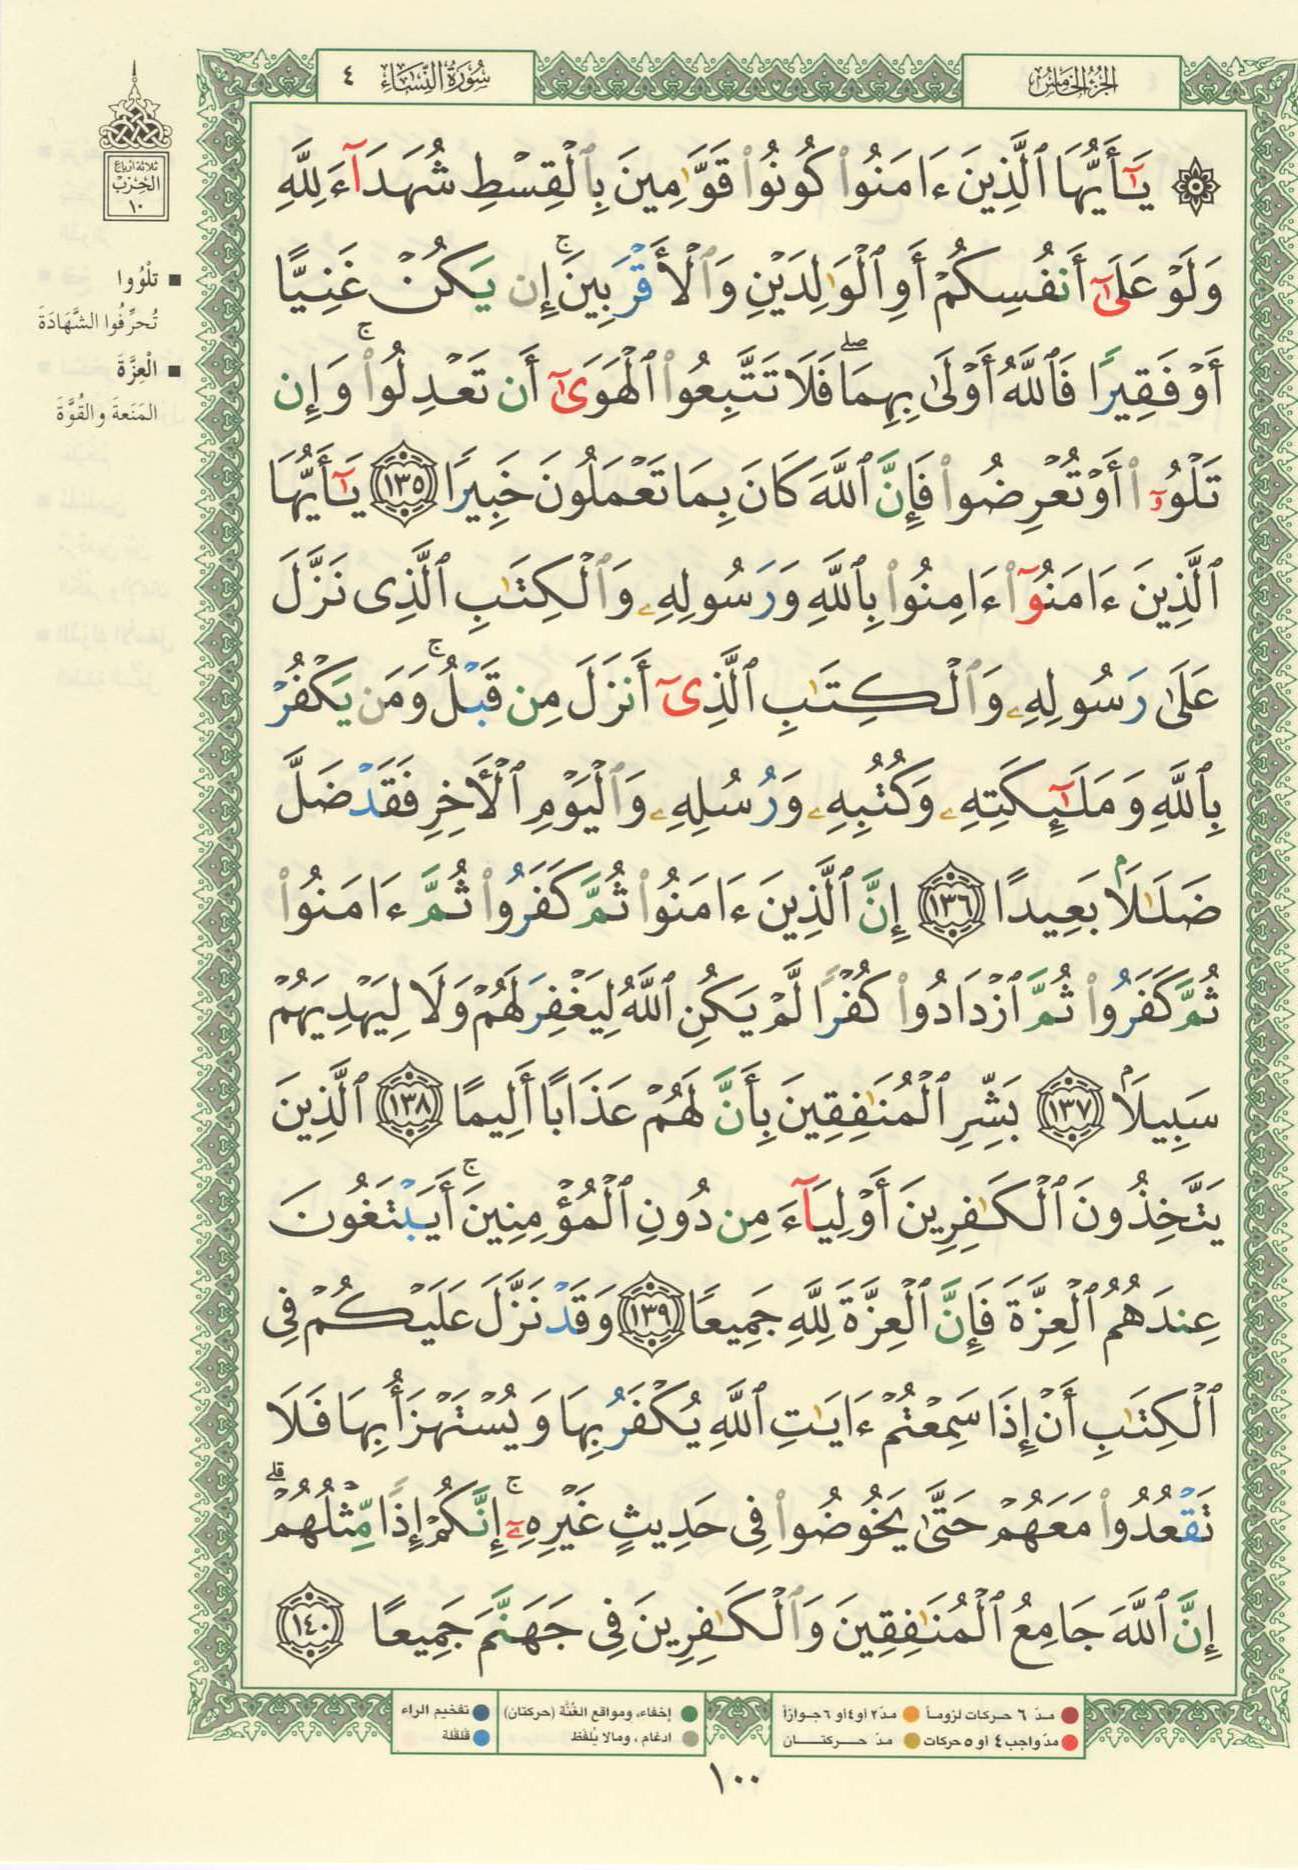 الجزء الخامس
سورة النساء ٤
ثلاثة أرباع
الحزب
١٠
۞ يَـٰٓأَيُّهَا ٱلَّذِينَ ءَامَنُوا۟ كُونُوا۟ قَوَّٰمِينَ بِٱلْقِسْطِ شُهَدَآءَ لِلَّهِ
وَلَوْ عَلَىٰٓ أَنفُسِكُمْ أَوِ ٱلْوَٰلِدَيْنِ وَٱلْأَقْرَبِينَ ۚ إِن يَكُنْ غَنِيًّا
أَوْ فَقِيرًا فَٱللَّهُ أَوْلَىٰ بِهِمَا ۖ فَلَا تَتَّبِعُوا۟ ٱلْهَوَىٰٓ أَن تَعْدِلُوا۟ ۚ وَإِن
تَلْوُۥٓا۟ أَوْ تُعْرِضُوا۟ فَإِنَّ ٱللَّهَ كَانَ بِمَا تَعْمَلُونَ خَبِيرًا ١٣٥ يَـٰٓأَيُّهَا
ٱلَّذِينَ ءَامَنُوٓا۟ ءَامِنُوا۟ بِٱللَّهِ وَرَسُولِهِۦ وَٱلْكِتَـٰبِ ٱلَّذِى نَزَّلَ
عَلَىٰ رَسُولِهِۦ وَٱلْكِتَـٰبِ ٱلَّذِىٓ أَنزَلَ مِن قَبْلُ ۚ وَمَن يَكْفُرْ
بِٱللَّهِ وَمَلَـٰٓئِكَتِهِۦ وَكُتُبِهِۦ وَرُسُلِهِۦ وَٱلْيَوْمِ ٱلْـَٔاخِرِ فَقَدْ ضَلَّ
ضَلَـٰلًۢا بَعِيدًا ١٣٦ إِنَّ ٱلَّذِينَ ءَامَنُوا۟ ثُمَّ كَفَرُوا۟ ثُمَّ ءَامَنُوا۟
ثُمَّ كَفَرُوا۟ ثُمَّ ٱزْدَادُوا۟ كُفْرًا لَّمْ يَكُنِ ٱللَّهُ لِيَغْفِرَ لَهُمْ وَلَا لِيَهْدِيَهُمْ
سَبِيلًۢا ١٣٧ بَشِّرِ ٱلْمُنَـٰفِقِينَ بِأَنَّ لَهُمْ عَذَابًا أَلِيمًا ١٣٨ ٱلَّذِينَ
يَتَّخِذُونَ ٱلْكَـٰفِرِينَ أَوْلِيَآءَ مِن دُونِ ٱلْمُؤْمِنِينَ ۚ أَيَبْتَغُونَ
عِندَهُمُ ٱلْعِزَّةَ فَإِنَّ ٱلْعِزَّةَ لِلَّهِ جَمِيعًا ١٣٩ وَقَدْ نَزَّلَ عَلَيْكُمْ فِى
ٱلْكِتَـٰبِ أَنْ إِذَا سَمِعْتُمْ ءَايَـٰتِ ٱللَّهِ يُكْفَرُ بِهَا وَيُسْتَهْزَأُ بِهَا فَلَا
تَقْعُدُوا۟ مَعَهُمْ حَتَّىٰ يَخُوضُوا۟ فِى حَدِيثٍ غَيْرِهِۦٓ ۚ إِنَّكُمْ إِذًا مِّثْلُهُمْ ۗ
إِنَّ ٱللَّهَ جَامِعُ ٱلْمُنَـٰفِقِينَ وَٱلْكَـٰفِرِينَ فِى جَهَنَّمَ جَمِيعًا ١٤٠
■ تلْوُوا
تُحرِّفُوا الشَّهَادَةَ
■ الْعِزَّةَ
المَنَعةَ والقُوَّةَ
مدّ ٦ حركات لزوماً
مدّ ٢ أو ٤ أو ٦ جوازاً
إخفاء، ومواقع الغُنَّة (حركتان)
تفخيم الراء
مدّ واجب ٤ أو ٥ حركات
مدّ حركتان
ادغام، ومالا يُلفَظ
قلقلة
١٠٠